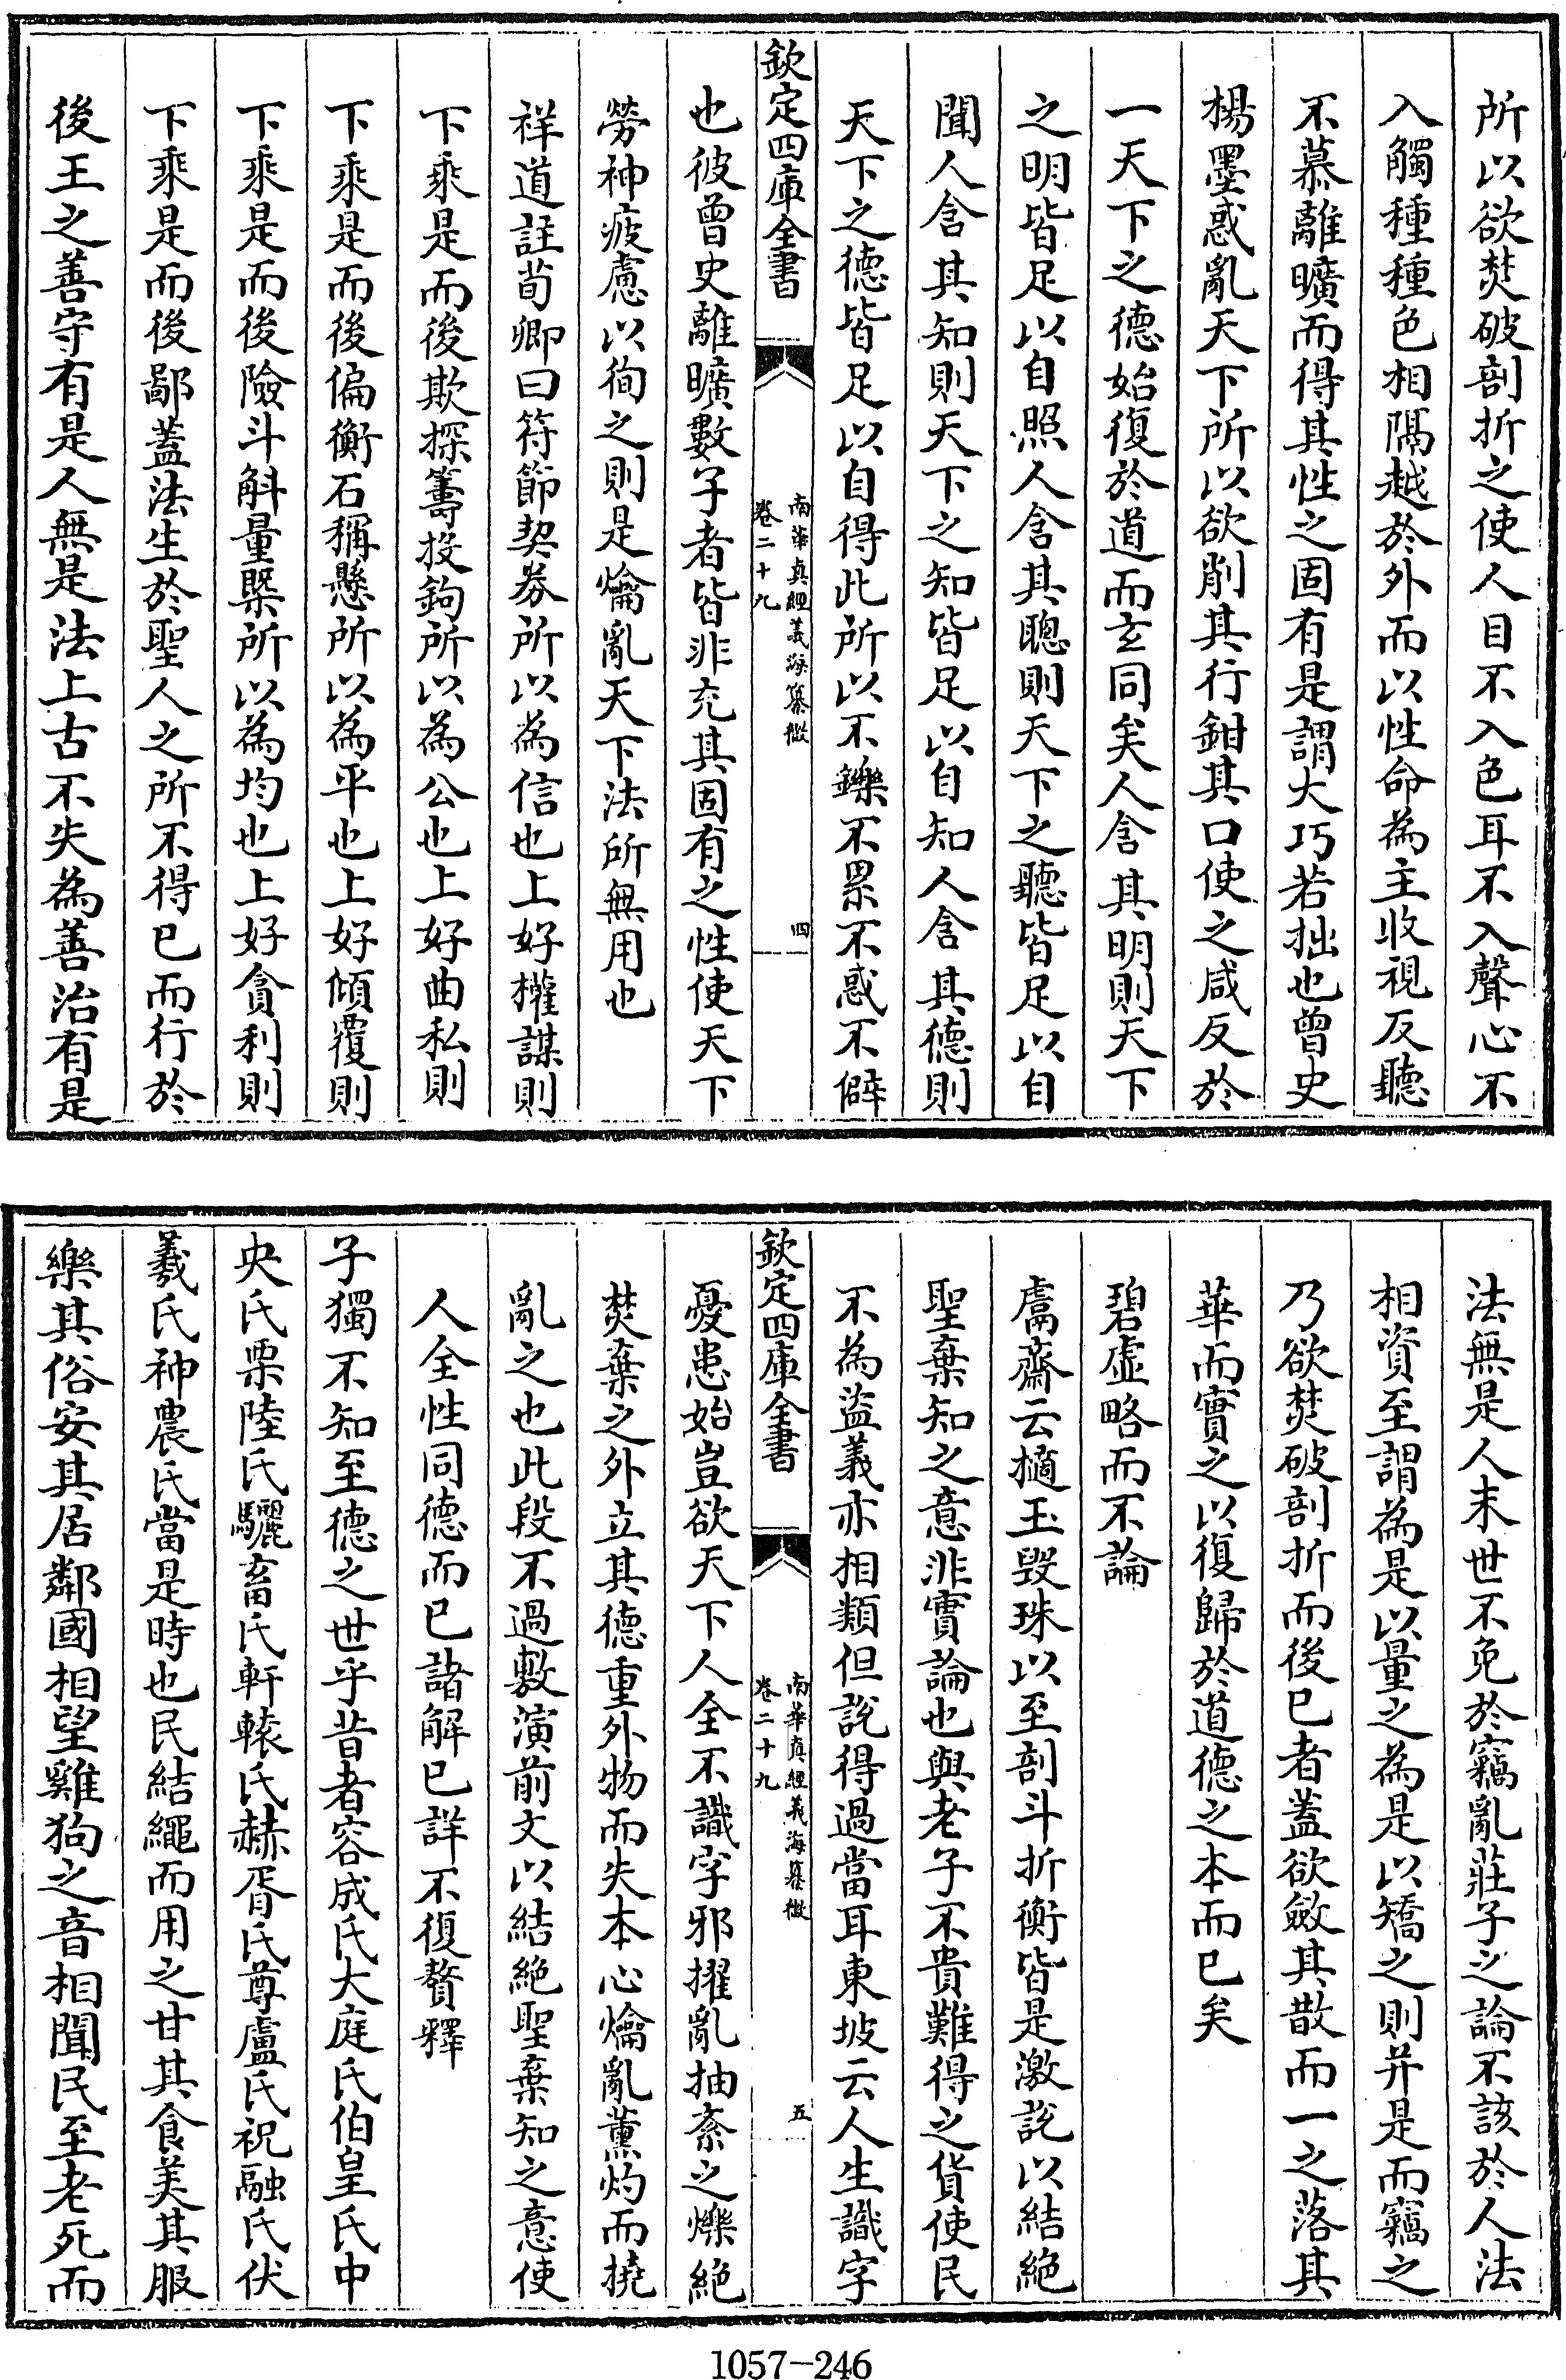 所以欲焚破剖折之使人目不入色耳不入聲心不
入觸種種色相隔越於外而以性命為主收視反聽
不慕離曠而得其性之固有是謂大巧若拙也曾史
楊墨惑亂天下所以欲削其行鉗其口使之咸反於
一天下之德始復於道而玄同矣人含其明則天下
之明皆足以自照人含其聰則天下之聽皆足以自
聞人含其知則天下之知皆足以自知人含其德則
天下之德皆足以自得此所以不鑠不累不惑不僻
欽定四庫全書
南華真經義海纂微
卷二十九
四
也彼曾史離曠數子者皆非充其固有之性使天下
勞神疲慮以徇之則是爚亂天下法所無用也
祥道註荀卿曰符節契券所以為信也上好權謀則
下乘是而後欺探籌投鉤所以為公也上好曲私則
下乘是而後偏衡石稱懸所以為平也上好傾覆則
下乘是而後險斗斛量槩所以為均也上好貪利則
下乘是而後鄙蓋法生於聖人之所不得已而行於
後王之善守有是人無是法上古不失為善治有是
法無是人末世不免於竊亂莊子之論不該於人法
相資至謂為是以量之為是以矯之則并是而竊之
乃欲焚破剖折而後已者蓋欲斂其散而一之落其
華而實之以復歸於道德之本而已矣
碧虛略而不論
鬳齋云擿玉毀珠以至剖斗折衡皆是激說以結絕
聖棄知之意非實論也與老子不貴難得之貨使民
不為盜義亦相類但說得過當耳東坡云人生識字
欽定四庫全書
南華真經義海纂微
卷二十九
五
憂患始豈欲天下人全不識字邪擢亂抽紊之爍絕
焚棄之外立其德重外物而失本心爚亂薰灼而撓
亂之也此段不過敷演前文以結絕聖棄知之意使
人全性同德而已諸解已詳不復贅釋
子獨不知至德之世乎昔者容成氏大庭氏伯皇氏中
央氏栗陸氏驪畜氏軒轅氏赫胥氏尊盧氏祝融氏伏
羲氏神農氏當是時也民結繩而用之甘其食美其服
樂其俗安其居鄰國相望雞狗之音相聞民至老死而
1057-246